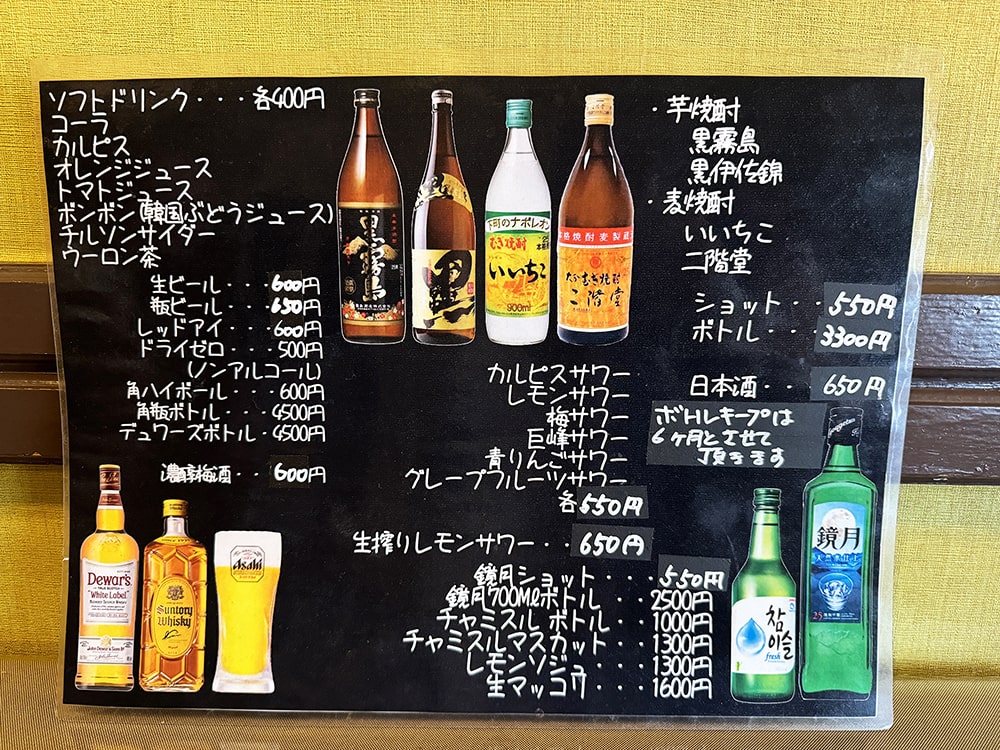 ソフトドリンク・・・各400円
コーラ
カルピス
オレンジジュース
トマトジュース
ボンボン(韓国ぶどうジュース)
チルソンサイダー
ウーロン茶
生ビール・・・600円
瓶ビール・・・650円
レッドアイ・・・600円
ドライゼロ・・・500円
(ノンアルコール)
角ハイボール・・・600円
角瓶ボトル・・・4500円
デュワーズボトル・4500円
濃醇梅酒・・600円
黒霧島
黒
下町のナポレオン
むぎ焼酎
いいちこ
900ml
本格焼酎麦製
大分むぎ焼酎
二階堂
・芋焼酎
黒霧島
黒伊佐錦
・麦焼酎
いいちこ
二階堂
ショット・・550円
ボトル・・3300円
日本酒・・650円
ボトルキープは
6ヶ月とさせて
頂きます
カルピスサワー
レモンサワー
梅サワー
巨峰サワー
青りんごサワー
グレープフルーツサワー
各550円
生搾りレモンサワー・・650円
鏡月ショット・・・・550円
鏡月700Mlボトル・・2500円
チャミスルボトル・・1000円
チャミスルマスカット・1300円
レモンソジュ・・・1300円
生マッコウ・・・1600円
Dewar's
"White Label"
Suntory
Whisky
Asahi
참이슬
fresh
鏡月
25